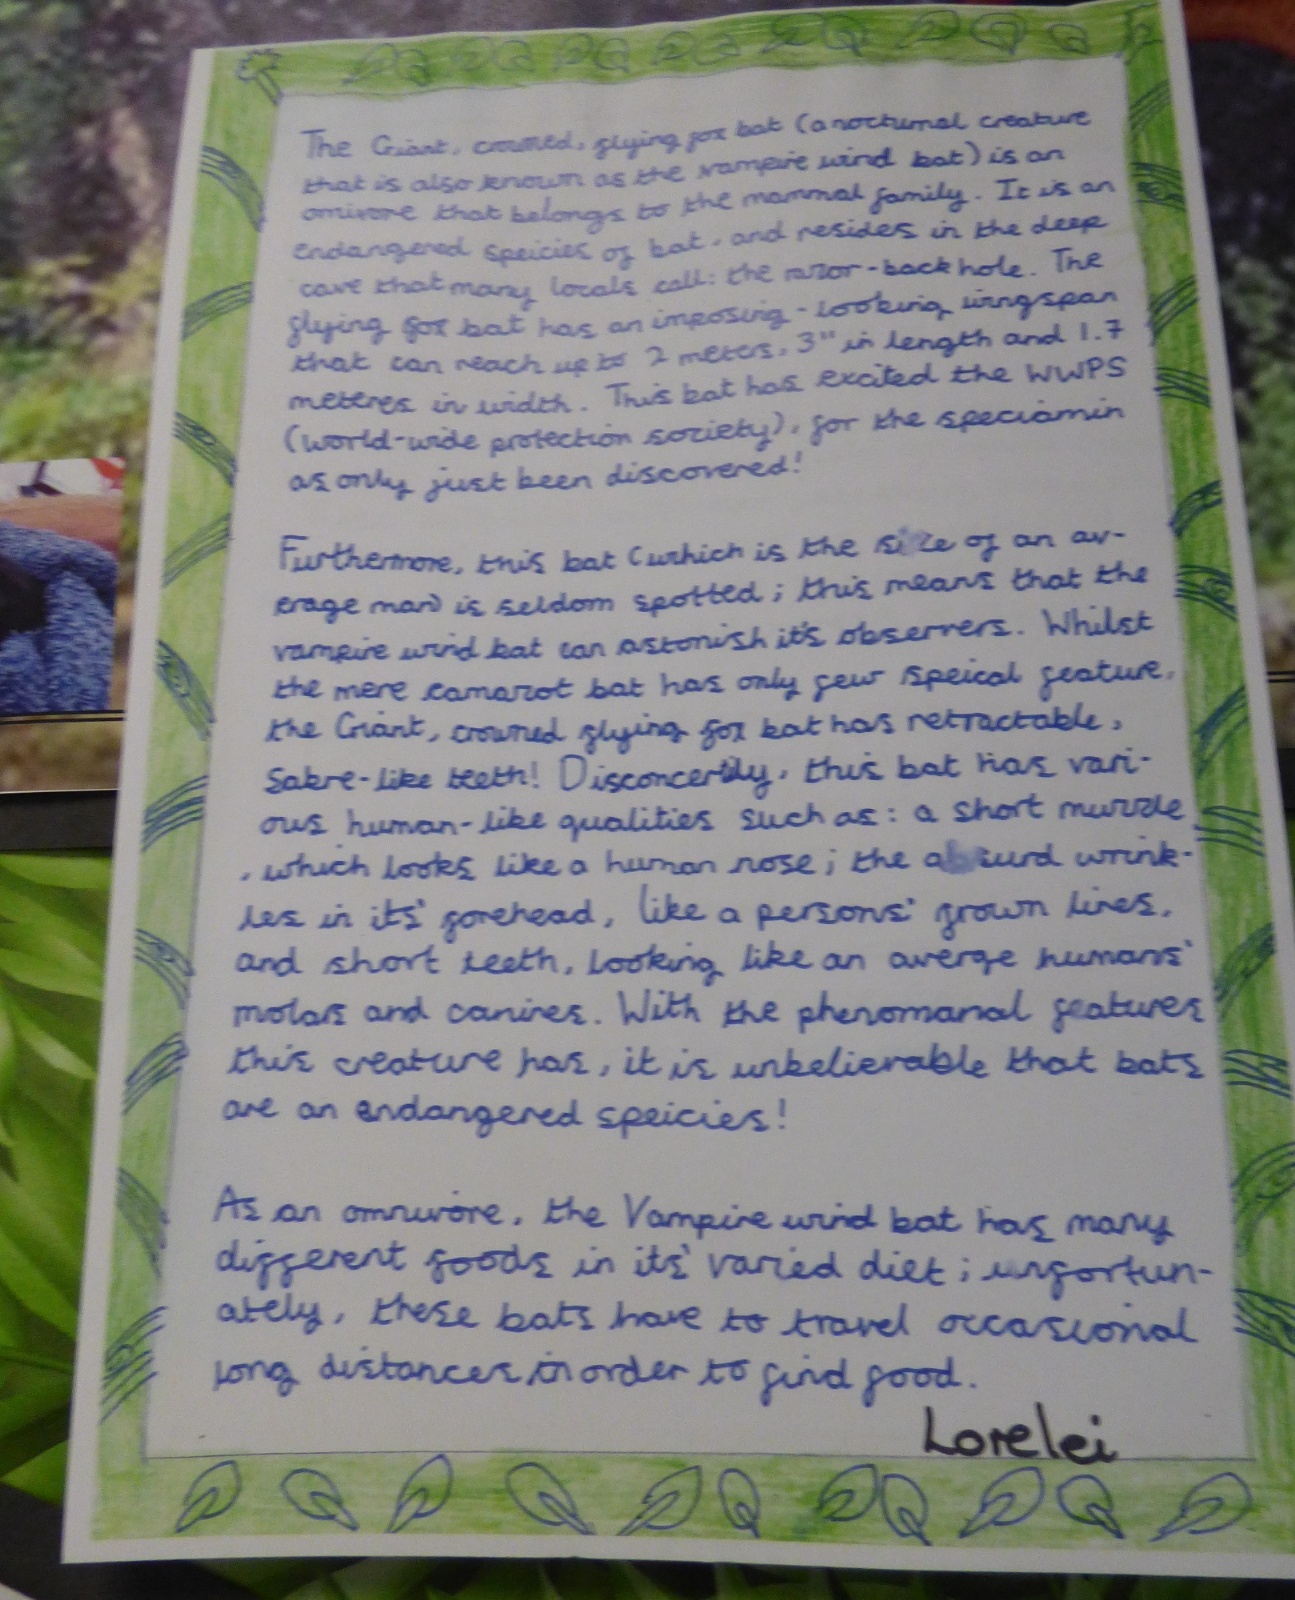 The Giant, crowned, flying fox bat (a nocturnal creature
that is also known as the vampire wind bat) is an
omivore that belongs to the mammal family. It is an
endangered speicies of bat, and resides in the deep
cave that many locals call: the razor-back hole. The
flying fox bat has an imposing-looking wingspan
that can reach up to 2 meters, 3" in length and 1.7
meteres in width. This bat has excited the WWPS
(world-wide protection society), for the speciamin
as only just been discovered!
Furthermore, this bat (which is the size of an av-
erage man) is seldom spotted; this means that the
vampire wind bat can astonish it's observers. Whilst
the mere camazot bat has only few speical feature,
the Giant, crowned flying fox bat has retractable,
sabre-like teeth! Disconcertily, this bat has vari-
ous human-like qualities such as: a short muzzle
, which looks like a human nose; the absurd wrink-
les in its' forehead, like a persons' frown lines,
and short teeth, looking like an averge humans'
molars and canines. With the phenomanal features
this creature has, it is unbelievable that bats
are an endangered speicies!
As an omnivore, the Vampire wind bat has many
different foods in its' varied diet; unfortun-
ately, these bats have to travel occasional
long distances in order to find food.
Lorelei